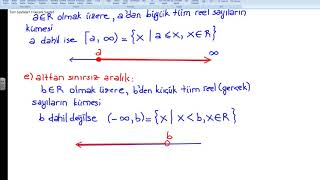 a∈R olmak üzere, a'dan büyük tüm reel sayıların
kümesi
a dahil ise [a, ∞) = {x | a≤x, x∈R}
a ∞
e) alttan sınırsız aralık:
b∈R olmak üzere, b'den küçük tüm reel (gerçek)
sayıların kümesi
b dahil değilse (-∞, b) = {x | x<b, x∈R}
b